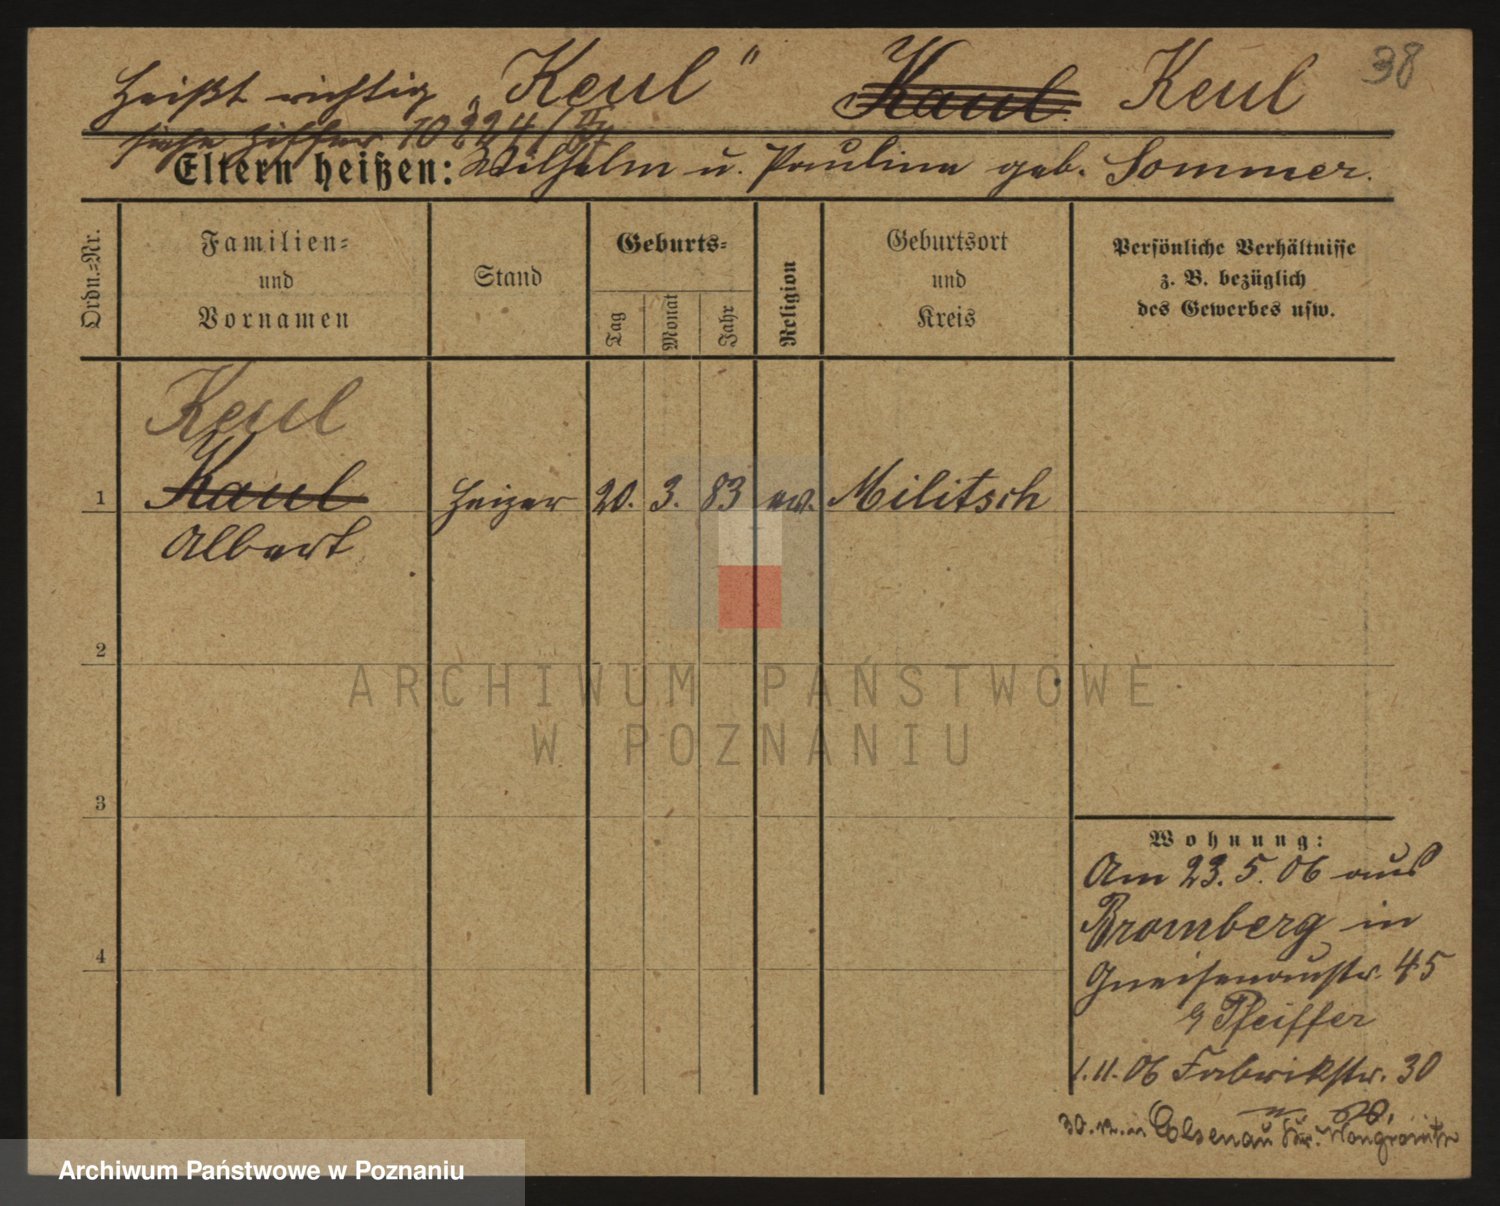 38
Heißt richtig „Keul" Kaul Keul
siehe Ziffer 10224/
Eltern heißen: Wilhelm u. Paulina geb. Sommer.
Ordn.=Nr.
Familien=
und
Vornamen
Stand
Geburts=
Tag
Monat
Jahr
Religion
Geburtsort
und
Kreis
Persönliche Verhältnisse
z. B. bezüglich
des Gewerbes usw.
Keul
1 Kaul Heizer 20. 3. 83 ev. Militsch
Albert
2
3
4
Wohnung:
Am 23. 5. 06 aus
Bromberg in
Gneisenaustr. 45
Pfeiffer
1.11.06 Fabrikstr. 30
Elsenau Kr. Wongrowitz
ARCHIWUM PAŃSTWOWE
W POZNANIU
Archiwum Państwowe w Poznaniu